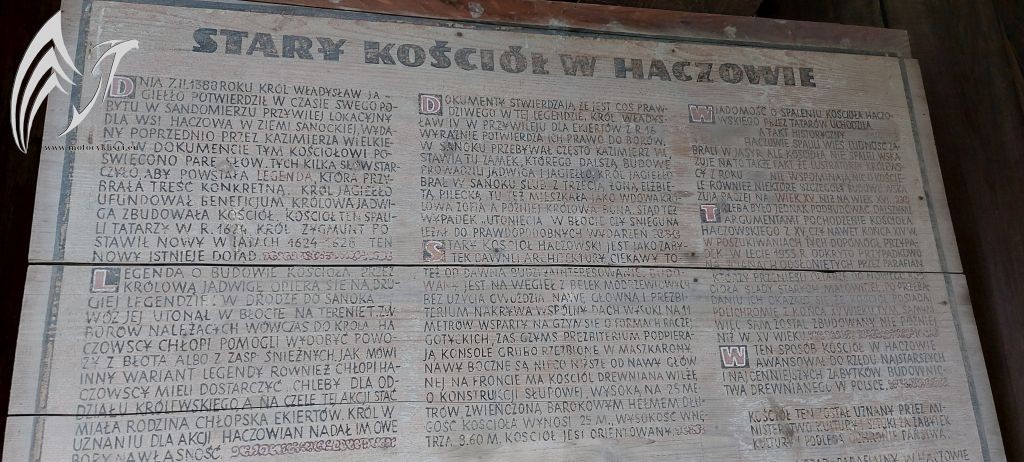 STARY KOŚCIÓŁ W HACZOWIE
DNIA 7.II.1388 ROKU KRÓL WŁADYSŁAW JA-
GIEŁŁO POTWIERDZIŁ W CZASIE SWEGO PO-
BYTU W SANDOMIERZU PRZYWILEJ LOKACYJNY
DLA WSI HACZOWA W ZIEMI SANOCKIEJ, WYDA-
NY POPRZEDNIO PRZEZ KAZIMIERZA WIELKIE-
W DOKUMENCIE TYM KOŚCIOŁOWI PO-
ŚWIĘCONO PARĘ SŁÓW. TYCH KILKA SŁÓW STAR-
CZYŁO, ABY POWSTAŁA LEGENDA, KTÓRA PRZY-
BRAŁA TREŚĆ KONKRETNĄ. KRÓL JAGIEŁŁO
UFUNDOWAŁ BENEFICJUM KRÓLOWA JADWI-
GA ZBUDOWAŁA KOŚCIÓŁ. KOŚCIÓŁ TEN SPALI-
LI TATARZY W R. 1624. KRÓL ZYGMUNT PO-
STAWIŁ NOWY W LATACH 1624-1628. TEN
NOWY ISTNIEJE DOTĄD.
LEGENDA O BUDOWIE KOŚCIOŁA PRZEZ
KRÓLOWĄ JADWIGĘ OPIERA SIĘ NA DRU-
GIEJ LEGENDZIE: W DRODZE DO SANOKA
WÓZ JEJ UTONĄŁ W BŁOCIE NA TERENIE T.ZW.
BORÓW NALEŻĄCYCH WÓWCZAS DO KRÓLA. HA-
CZOWSCY CHŁOPI POMOGLI WYDOBYĆ POWO-
ZY Z BŁOTA ALBO Z ZASP ŚNIEŻNYCH, JAK MÓWI
INNY WARIANT LEGENDY RÓWNIEŻ CHŁOPI HA-
CZOWSCY MIELI DOSTARCZYĆ CHLEBY DLA OD-
DZIAŁU KRÓLEWSKIEGO, A NA CZELE TEJ AKCJI STAĆ
MIAŁA RODZINA CHŁOPSKA EKIERTÓW. KRÓL W
UZNANIU DLA AKCJI HACZOWIAN NADAŁ IM OWE
BORY NA WŁASNOŚĆ
DOKUMENTY STWIERDZAJĄ, ŻE JEST COŚ PRAW-
DZIWEGO W TEJ LEGENDZIE. KRÓL WŁADYS-
ŁAW IV W PRZYWILEJU DLA EKIERTÓW Z R. 16
WYRAŹNIE POTWIERDZA ICH PRAWO DO BORÓW.
W SANOKU PRZEBYWAŁ CZĘSTO KAZIMIERZ W.
STAWIAJĄC TU ZAMEK, KTÓREGO DALSZĄ BUDOWĘ
PROWADZILI JADWIGA I JAGIEŁŁO. KRÓL JAGIEŁŁO
BRAŁ W SANOKU ŚLUB Z TRZECIĄ ŻONĄ ELŻBIE-
TĄ PILECKĄ, TU TEŻ MIESZKAŁA JAKO WDOWA KRÓ-
LOWA ZOFIA A PÓŹNIEJ KRÓLOWA BONA. STĄD TEŻ
WYPADEK „UTONIĘCIA" W BŁOCIE CZY ŚNIEGU NA-
LEŻY DO PRAWDOPODOBNYCH WYDARZEŃ
STARY KOŚCIÓŁ HACZOWSKI JEST JAKO ZABY-
TEK DAWNEJ ARCHITEKTURY CIEKAWY TO-
TEŻ OD DAWNA BUDZI ZAINTERESOWANIE. BUDO-
WANY JEST NA WĘGIEŁ Z BELEK MODRZEWIOWYCH
BEZ UŻYCIA GWOŹDZIA. NAWĘ GŁÓWNĄ I PREZBI-
TERIUM NAKRYWA WSPÓLNY DACH WYSOKI NA 11
METRÓW WSPARTY NA GZYMSIE O FORMACH RACZEJ
GOTYCKICH, ZAŚ GZYMS PREZBITERIUM PODPIERA-
JĄ KONSOLE GRUBO RZEŹBIONE W MASZKARONY.
NAWY BOCZNE SĄ NIECO NIŻSZE OD NAWY GŁÓW-
NEJ NA FRONCIE MA KOŚCIÓŁ DREWNIANĄ WIEŻĘ
O KONSTRUKCJI SŁUPOWEJ, WYSOKĄ NA 25 ME-
TRÓW, ZWIEŃCZONĄ BAROKOWYM HEŁMEM. DŁU-
GOŚĆ KOŚCIOŁA WYNOSI 25 M., WYSOKOŚĆ WNĘ-
TRZA 8.60 M. KOŚCIÓŁ JEST ORIENTOWANY.
WIADOMOŚĆ O SPALENIU KOŚCIOŁA HACZO-
WSKIEGO PRZEZ TATARÓW UCHODZIŁA
ZA FAKT HISTORYCZNY
HACZOWIE SPALILI WIEŚ LUDNOŚĆ ZA-
BRALI W JASYR ALE KOŚCIOŁA NIE SPALILI WSKA-
ZUJE NA TO TAKŻE
CY Z ROKU NIE WSPOMINAJĄ
LE RÓWNIEŻ NIEKTÓRE SZCZEGÓŁY BUDOWLI WSKA-
ZUJĄ RACZEJ NA WIEK XV NIŻ NA WIEK XVII
TRZEBA BYŁO JEDNAK
ARGUMENTAMI POCHODZENIE KOŚCIOŁA
HACZOWSKIEGO Z XV CZY NAWET KOŃCA XIV W.
W POSZUKIWANIACH TYCH DOPOMÓGŁ PRZYPA-
DEK. W LECIE 1955 R. ODKRYTO PRZYPADKOWO
PARAFIAN
ŚLADY STAREJ
DANIU ICH OKAZAŁO SIĘ, ŻE KOŚCIÓŁ POSIADA
POLICHROMIĘ Z KOŃCA XV WIEKU. TYM SAMYM
WIĘC SAM ZOSTAŁ ZBUDOWANY NIE PÓŹNIEJ
NIŻ W XV WIEKU
W TEN SPOSÓB KOŚCIÓŁ W HACZOWIE
AWANSOWAŁ DO RZĘDU NAJSTARSZYCH
I NAJCENNIEJSZYCH ZABYTKÓW BUDOWNIC-
TWA DREWNIANEGO W POLSCE.
KOŚCIÓŁ TEN ZOSTAŁ UZNANY PRZEZ MI-
NISTERSTWO KULTURY I SZTUKI ZA ZABYTEK
KULTURY I PODLEGA OCHRONIE PAŃSTWA.
PARAFIALNY W HACZOWIE